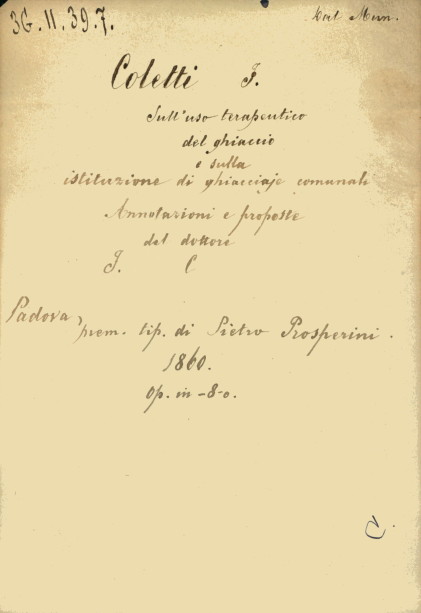 3G.11.39.7.
Dat Mun.
Coletti F.
Sull'uso terapeutico
del ghiaccio
e sulla
istituzione di ghiacciaje comunali
Annotazioni e proposte
del dottore
F. C
Padova, prem. tip. di Pietro Prosperini.
1860.
Op. in-8-o.
C.